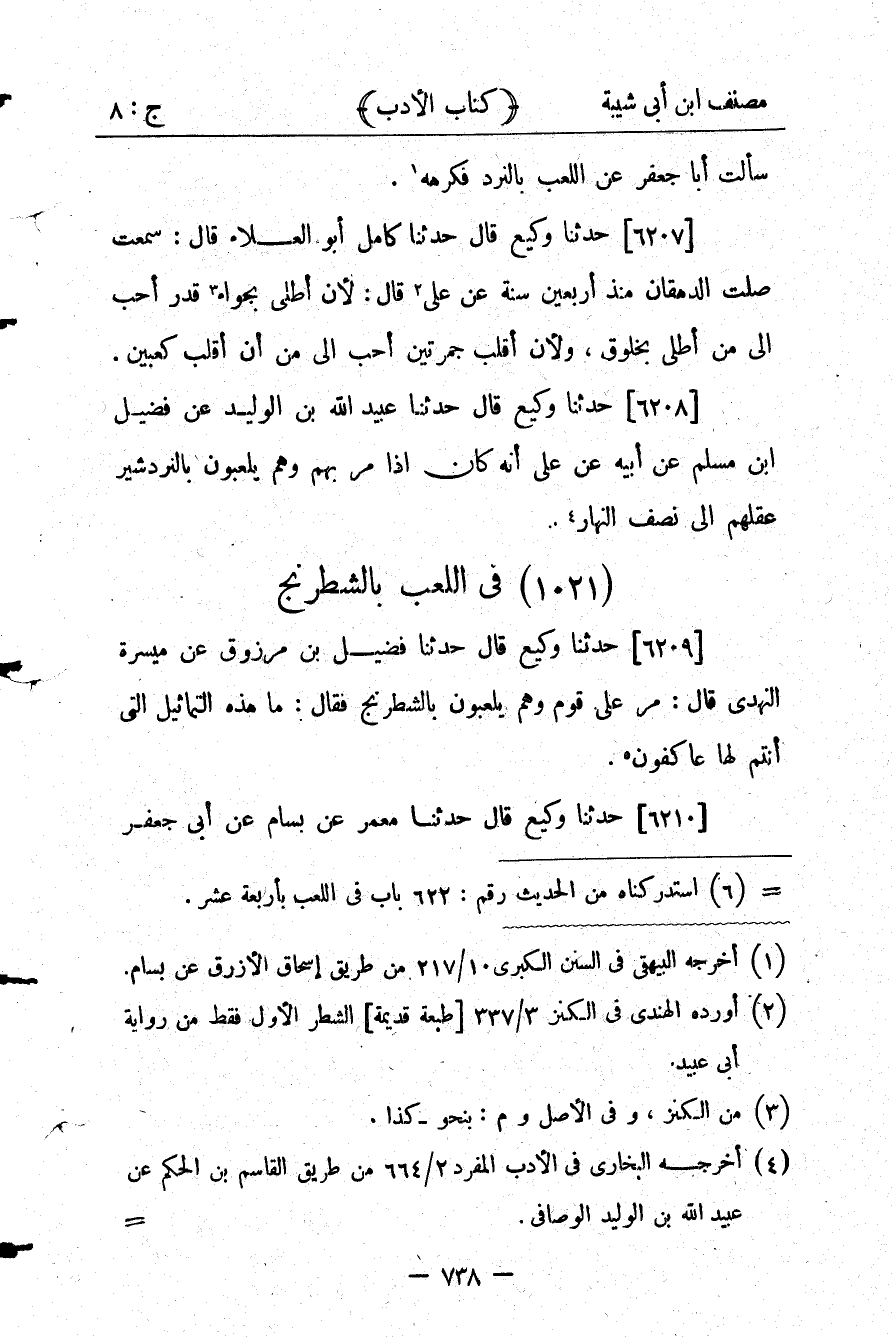 مصنف ابن أبى شيبة ﴿ كتاب الأدب ﴾ ج : ٨
سألت أبا جعفر عن اللعب بالنرد فكرهه١ .
[٦٢٠٧] حدثنا وكيع قال حدثنا كامل أبو العلاء قال : سمعت
صلت الدهقان منذ أربعين سنة عن على٢ قال : لأن أطلى بجواء٣ قدر أحب
الى من أطلى بخلوق ، ولأن أقلب جمرتين أحب الى من أن أقلب كعبين .
[٦٢٠٨] حدثنا وكيع قال حدثنا عبيد الله بن الوليد عن فضيل
ابن مسلم عن أبيه عن على أنه كان اذا مر بهم وهم يلعبون بالنردشير
عقلهم الى نصف النهار٤ .
(١٠٢١) فى اللعب بالشطرنج
[٦٢٠٩] حدثنا وكيع قال حدثنا فضيل بن مرزوق عن ميسرة
النهدى قال : مر على قوم وهم يلعبون بالشطرنج فقال : ما هذه التماثيل التى
أنتم لها عاكفون٥ .
[٦٢١٠] حدثنا وكيع قال حدثنا معمر عن بسام عن أبى جعفر
= (٦) استدركناه من الحديث رقم : ٦٢٢ باب فى اللعب بأربعة عشر .
(١) أخرجه البيهقى فى السنن الكبرى ٢١٧/١٠ من طريق إسحاق الأزرق عن بسام.
(٢) أورده الهندى فى الكنز ٣٣٧/٣ [طبعة قديمة] الشطر الأول فقط من رواية
أبى عبيد.
(٣) من الكنز ، و فى الأصل و م : بنحو ـ كذا .
(٤) أخرجه البخارى فى الأدب المفرد ٦٦٤/٢ من طريق القاسم بن الحكم عن
عبيد الله بن الوليد الوصافى . =
— ٧٣٨ —